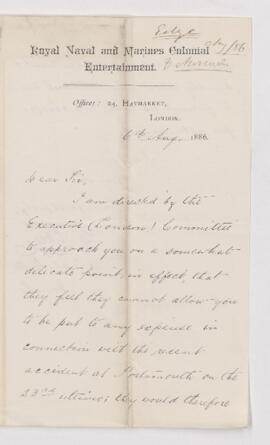 Royal Naval and Marines Colonial
Entertainment.
Offices: 24, Haymarket,
London.
6th Aug. 1886.
Dear Sir,
I am directed by the
Executive (London) Committee
to approach you on a somewhat
delicate point, in effect, that
they feel they cannot allow you
to be put to any expense in
connection with the recent
accident at Portsmouth on the
23rd ultimo; they would therefore